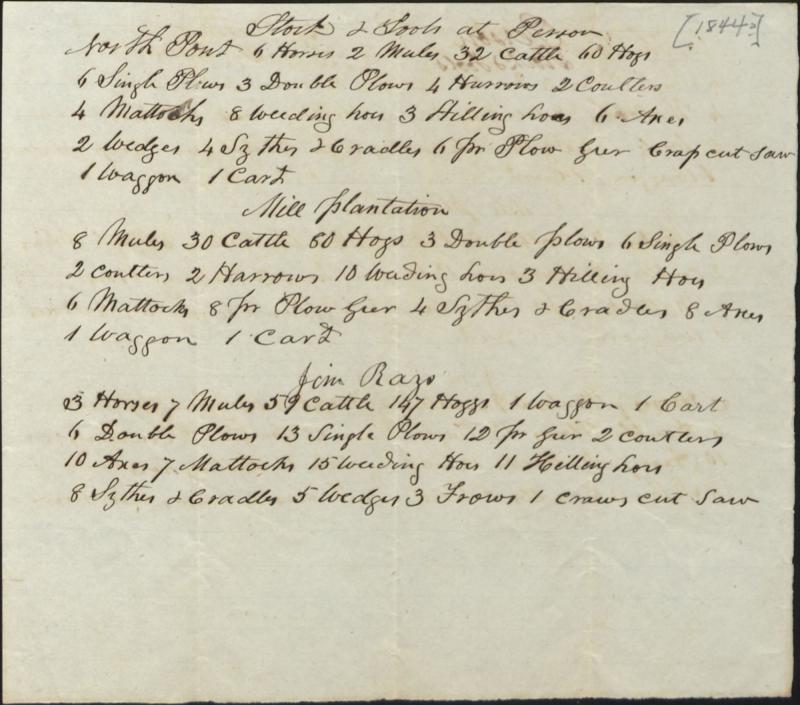 Stock & Tools at Person [1844?]
North Pont 6 Horses 2 Mules 32 Cattle 60 Hogs
6 Single Plows 3 Double Plows 4 Harrows 2 Coulters
4 Mattocks 8 weeding hoes 3 Hilling hoes 6 Axes
2 Wedges 4 Sythes & Cradles 6 pr Plow Geer Crap cut Saw
1 Waggon 1 Cart
Mill plantation
8 Mules 30 Cattle 60 Hogs 3 Double plows 6 Single Plows
2 coulters 2 Harrows 10 Weeding hoes 3 Hilling Hoes
6 Mattocks 8 pr Plow Geer 4 Sythes & Cradles 8 Axes
1 Waggon 1 Cart
Jim Rays
3 Horses 7 Mules 59 Cattle 147 Hoggs 1 Waggon 1 Cart
6 Double Plows 13 Single Plows 12 pr Geer 2 coulters
10 Axes 7 Mattocks 15 Weeding Hoes 11 Hilling hoes
8 Sythes & Cradles 5 Wedges 3 Frows 1 craws cut Saw